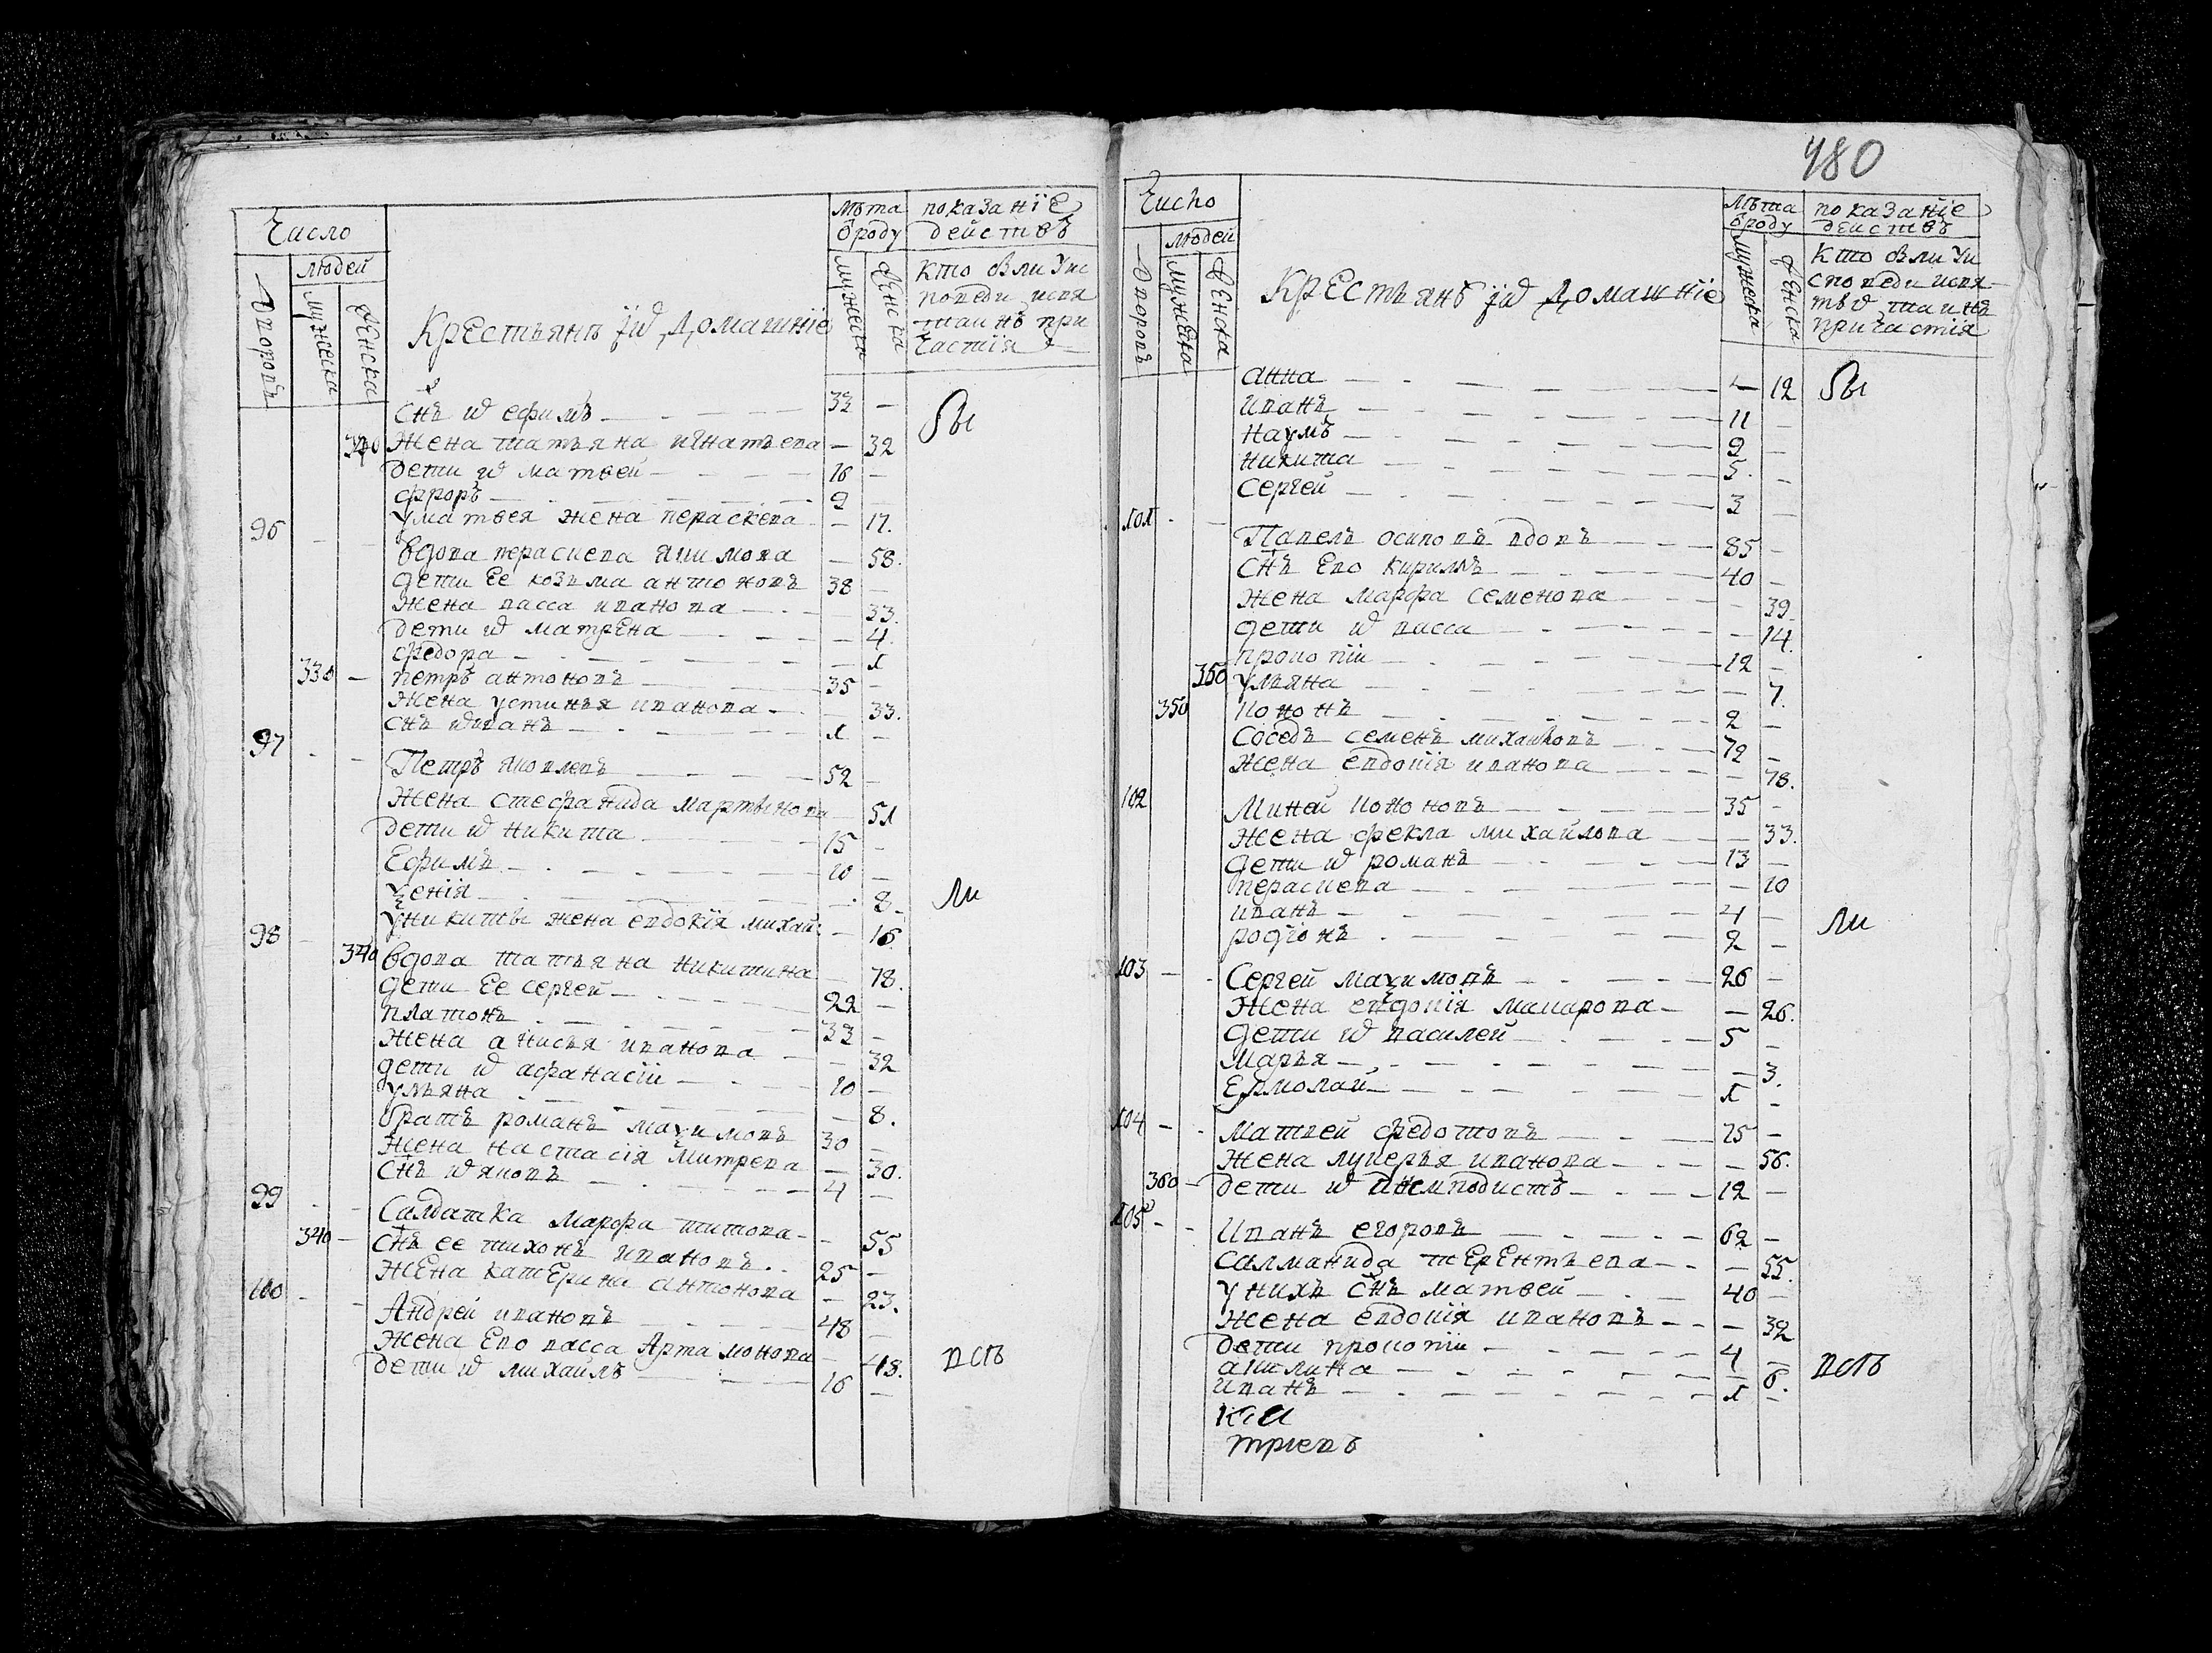 480
Число
людей
дворовъ
мужеска
женска
Крестьянъ їѡ домашнїе
лѣта
ѿ роду
мужеска
женска
показанїе
действъ
кто были у ис
поведи и свя
таинъ при
частїя
снъ ѡ ефимъ 32 — бы
330 жена татьяна игнатьева — 32
дети ѡ матвей 16 —
фрорь 9
у матвея жена пераскева — 17.
96
вдова пераскева якимова — 58.
дети ее козьма антоновъ 38 —
жена васса иванова — 33.
дети ѡ матрена — 4.
федора — 1
330 — петръ антоновъ 35 —
жена устинья иванова — 33.
снъ ѡ иванъ 1 —
97
Петръ яковлевъ 52 —
жена стефанида мартынова 51
дети ѡ никита 15 —
Ефимъ 10 —
ѯенїя 8 — ли
у никиты жена евдокїя михай: — 16
98
340 вдова татьяна никитина — 78.
дети ее сергей 22 —
платонъ 33 —
жена анисья иванова — 32
дети ѡ афанасїи 10 —
ульяна — 8.
братъ романъ маѯимовъ 30 —
жена настасїя митрева — 30.
снъ ѡ яковъ 4 —
99
Салдатка марфа титова — 55
340 — снъ ее тихонъ ивановъ 25 —
жена катерина антонова — 23.
100
Андрей ивановъ 48 —
жена Ево васса Артамонова — 48. всѣ
дети ѡ михаилъ 16 —
Число
людей
дворовъ
мужеска
женска
Крестьянъ їѡ домашнїе
лѣта
ѿ роду
мужеска
женска
показанїе
действъ
кто были у и
споведи и свя
тыѡ таинъ
причастїя
анна — 12 бы
иванъ 11 —
наумъ 9 —
никита 5. —
сергей 3 —
101
Павелъ осиповъ вдовъ 85 —
снъ Ево кирилъ 40 —
жена марфа семенова — 39.
дети ѡ васса — 14.
прокопїи 12 —
350 ульяна — 7.
350 кононъ 2 —
Соседъ семенъ михаиловъ 72 —
жена евдокїя иванова — 78.
102
Минай кононовъ 35 —
жена фекла михайлова — 33.
дети ѡ романъ 13 —
пераскева — 10
иванъ 4 — ли
родїонъ 2 —
103
Сергей маѯимовъ 26 —
жена евдокїя макарова — 26.
дети ѡ василей 5 —
марья — 3.
Ермолай 1 —
104
Матвей федотовъ 75 —
жена лукерья иванова — 56.
360 — дети ѡ анемподистъ 12 —
105
Иванъ егоровъ 62 —
салманида терентьева — 55.
у нихъ снъ матвей 40 —
жена евдокїя ивановъ — 32
дети прокопїи 4 —
акилина — 6. всѣ
иванъ 1 —